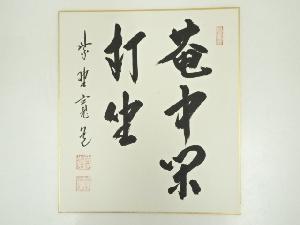 菴中閑
打坐
紫野寛道